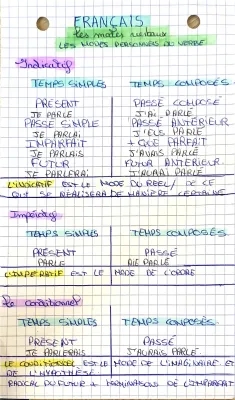 FRANÇAIS
les modes verbaux
LES MODES PERSONNELS DU VERBE
Indicatif
TEMPS SIMPLES TEMPS COMPOSÉS
PRÉSENT PASSÉ COMPOSÉ
JE PARLE J'AI PARLÉ
PASSÉ SIMPLE PASSÉ ANTÉRIEUR
JE PARLAI J'EUS PARLÉ
IMPARFAIT + QUE PARFAIT
JE PARLAIS J'AVAIS PARLÉ
FUTUR FUTUR ANTÉRIEUR
JE PARLERAI J'AURAI PARLÉ
L'INDICATIF EST LE MODE DU RÉEL/ DE CE
QUI SE RÉALISERA DE MANIÈRE CERTAINE
Impératif
TEMPS SIMPLES TEMPS COMPOSÉS
PRÉSENT PASSÉ
PARLE AIE PARLÉ
L'IMPÉRATIF EST LE MODE DE L'ORDRE
Le conditionnel
TEMPS SIMPLES TEMPS COMPOSÉS
PRÉSENT PASSÉ
JE PARLERAIS J'AURAIS PARLÉ
LE CONDITIONNEL EST LE MODE DE L'IMAGINAIRE ET
DE L'HYPOTHÈSE
RADICAL DU FUTUR + TERMINAISONS DE L'IMPARFAIT